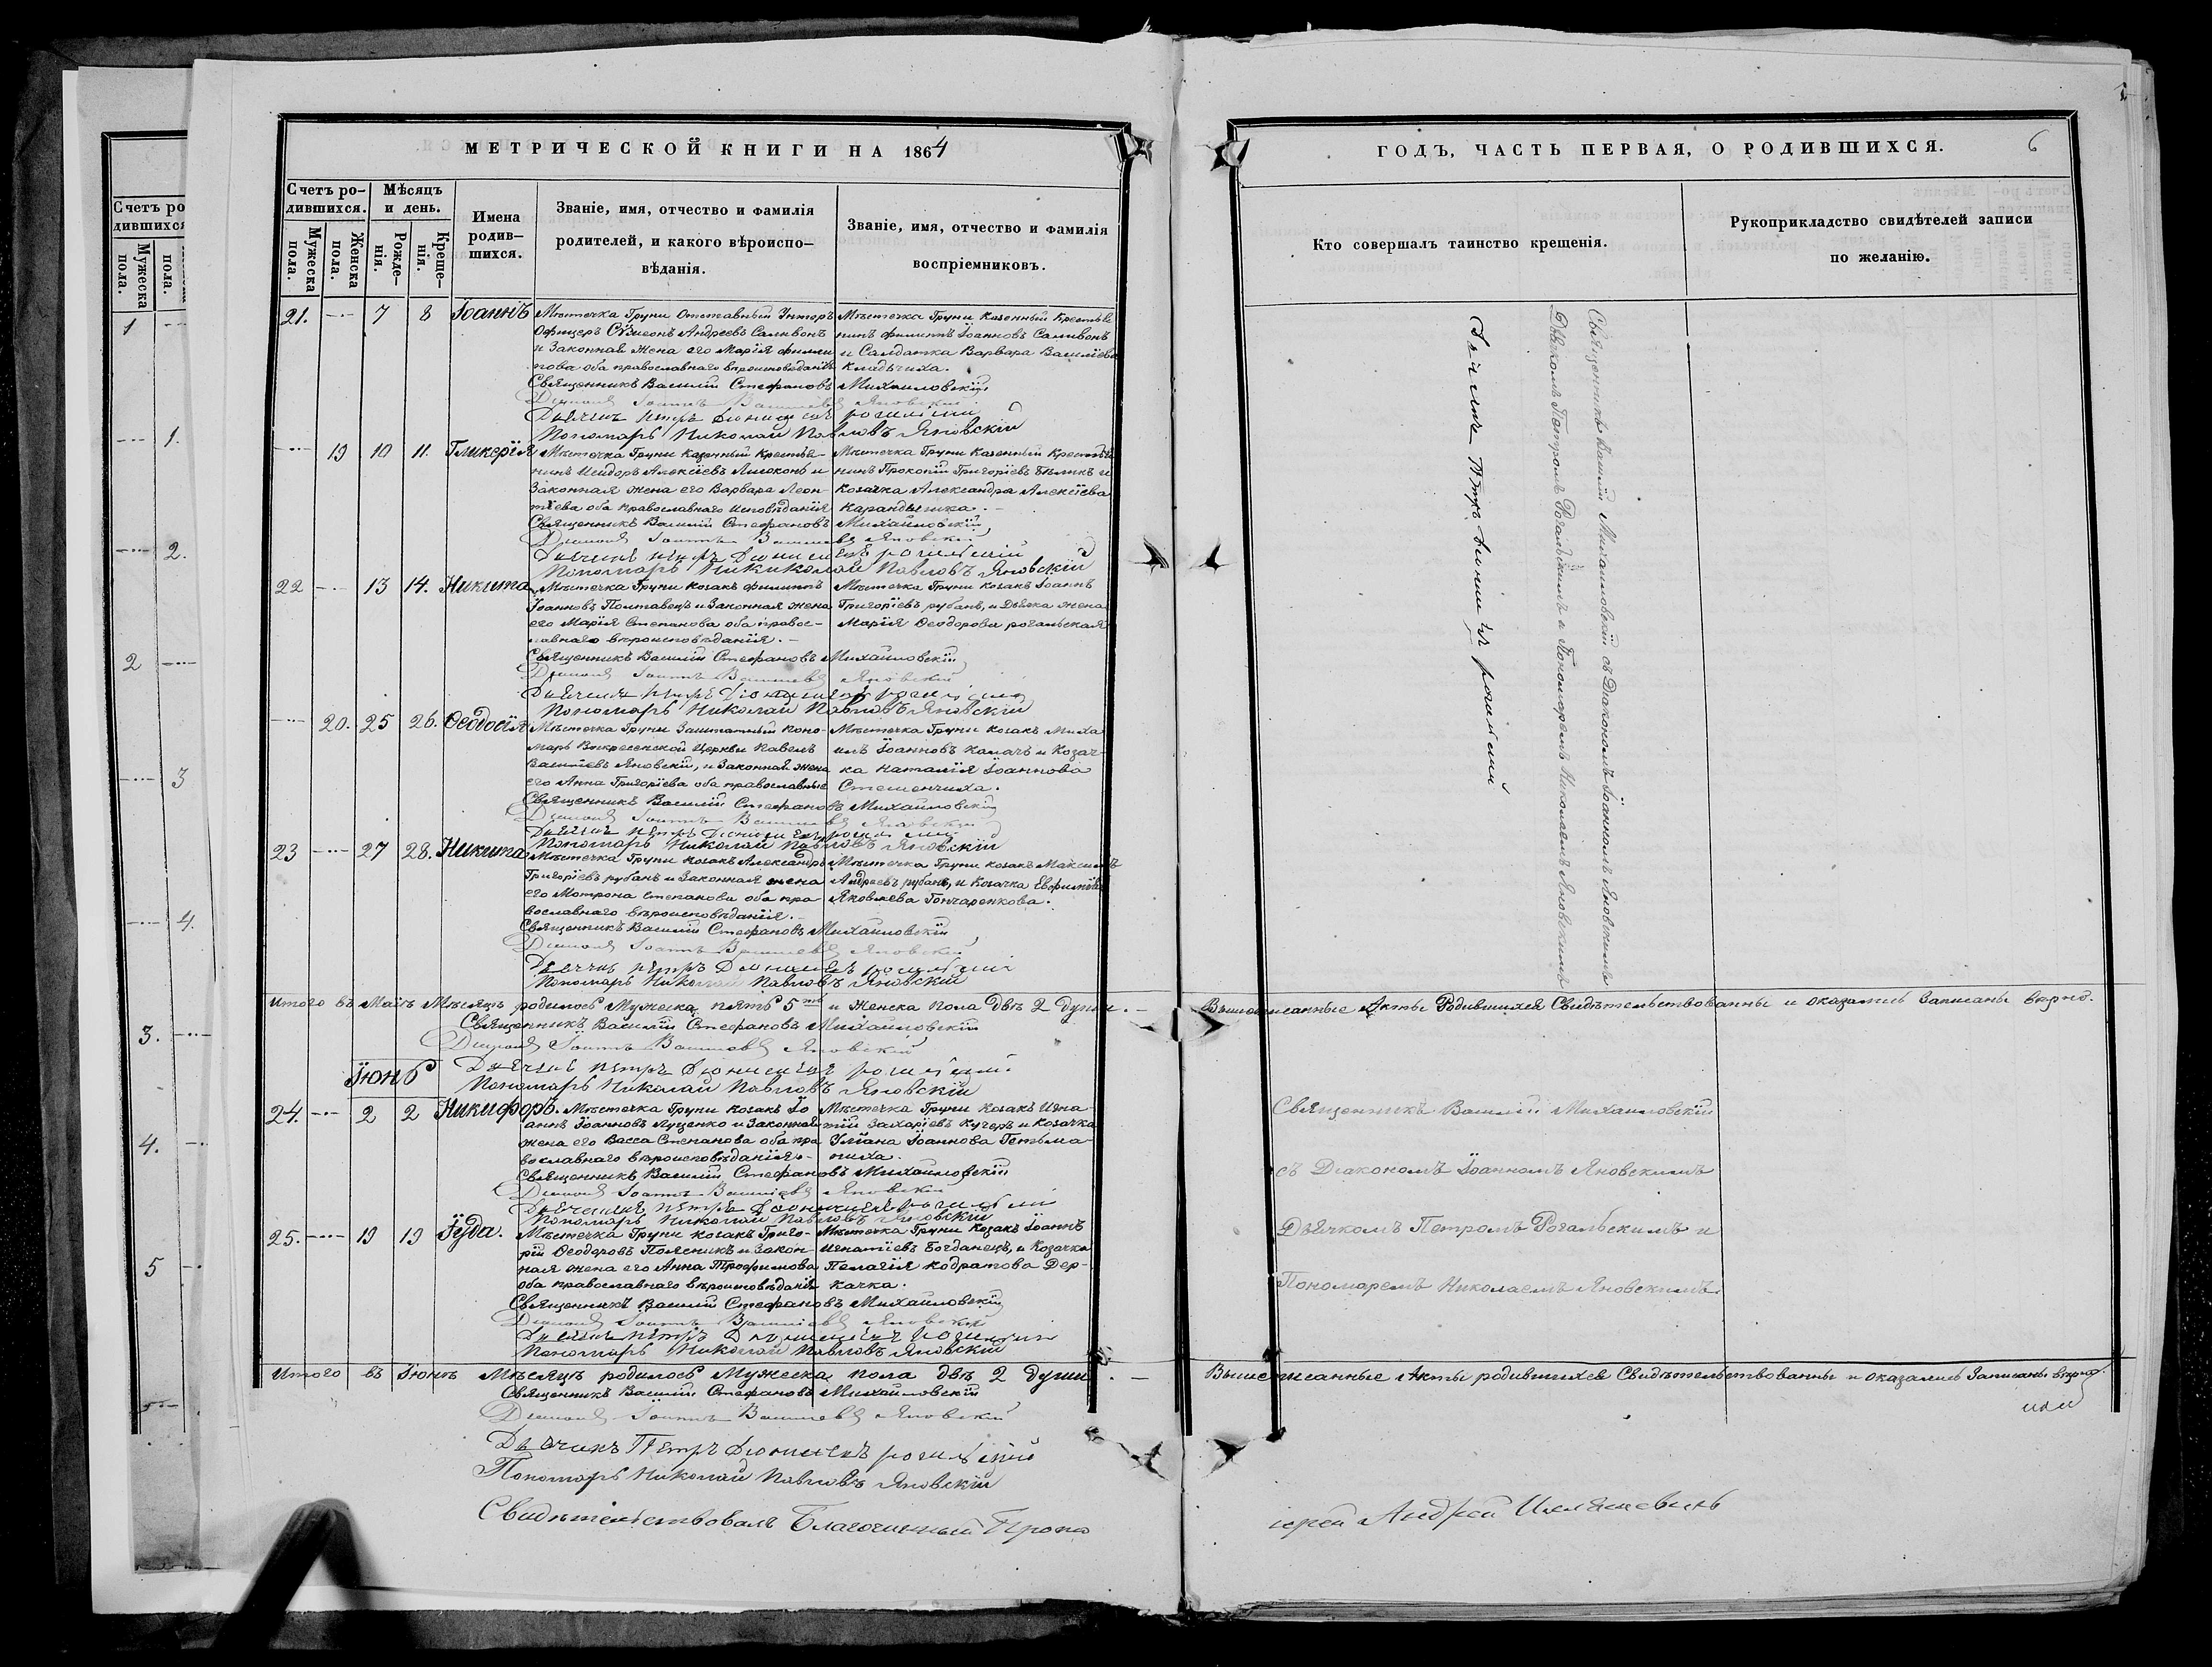 МЕТРИЧЕСКОЙ КНИГИ НА 1864
Счетъ ро-
дившихся.
Мѣсяцъ
и день.
Мужеска
пола.
Женска
пола.
Рожде-
нія.
Креще-
нія.
Имена
родив-
шихся.
Званіе, имя, отчество и фамилія
родителей, и какого вѣроиспо-
вѣданія.
Званіе, имя, отчество и фамилія
воспріемниковъ.
21. 7 8 Іоаннъ
Мѣстечка Груни Отставный Унтеръ
Офицеръ Сѵмеонъ Андреевъ Саливонъ
и Законная жена его Марія Филип
пова оба православнаго вѣроисповѣданія
Мѣстечка Груни Казенный Крестья
нинъ Филиппъ Іоанновъ Саливонъ
и Салдатка Варвара Василіева
Священникъ Василій Стефановъ Михайловскій
Діаконъ Іоаннъ Василіевъ Яновскій
Дьячекъ Петръ Діонисіевъ Рогальскій
Пономарь Николай Павловъ Яновскій
19 10 11. Гликерія
Мѣстечка Груни Казенный Крестья-
нинъ Исидоръ Алексіевъ и
Законная жена его Варвара Леон-
тіева оба православнаго исповѣданія
Мѣстечка Груни Казенный Крестья
нинъ Прокопій Григоріевъ Бѣликъ и
Козачка Александра Алексіева
Священникъ Василій Стефановъ Михайловскій
Діаконъ Іоаннъ Василіевъ Яновскій
Дьячекъ Петръ Діонисіевъ Рогальскій
Пономарь Николай Павловъ Яновскій
22 13 14. Никита
Мѣстечка Груни козакъ Филиппъ
Іоанновъ Полтавецъ и Законная жена
его Марія Степанова оба правос-
лавнаго вѣроисповѣданія.
Мѣстечка Груни козакъ Іоаннъ
Григоріевъ Рубанъ, и Дьячка жена
Марія Ѳеодорова Рогальская
Священникъ Василій Стефановъ Михайловскій
Діаконъ Іоаннъ Василіевъ Яновскій
Дьячекъ Петръ Діонисіевъ Рогальскій
Пономарь Николай Павловъ Яновскій
20. 25 26. Ѳеодосія
Мѣстечка Груни Заштатный Поно-
марь Воскресенской Церкви Павелъ
Василіевъ Яновскій, и Законная жена
его Анна Григоріева оба православные
Мѣстечка Груни козакъ Миха
илъ Іоанновъ Калачъ и Козач-
ка Наталія Іоаннова
Священникъ Василій Стефановъ Михайловскій
Діаконъ Іоаннъ Василіевъ Яновскій
Дьячекъ Петръ Діонисіевъ Рогальскій
Пономарь Николай Павловъ Яновскій
23 27 28. Никита
Мѣстечка Груни козакъ Александръ
Григоріевъ Рубанъ и Законная жена
его Мотрона Степанова оба пра
вославнаго вѣроисповѣданія.
Мѣстечка Груни козакъ Максимъ
Андреевъ Рубанъ, и Козачка Евфимія
Яковлева Гончаренкова.
Священникъ Василій Стефановъ Михайловскій
Діаконъ Іоаннъ Василіевъ Яновскій
Дьячекъ Петръ Діонисіевъ Рогальскій
Пономарь Николай Павловъ Яновскій
Итого въ Маѣ Мѣсяцѣ родилось Мужеска пять 5 и Женска пола Двѣ 2 души.
Священникъ Василій Стефановъ Михайловскій
Діаконъ Іоаннъ Василіевъ Яновскій
Дьячекъ Петръ Діонисіевъ Рогальскій
Пономарь Николай Павловъ Яновскій
Іюнь
24. 2 2 Никифоръ.
Мѣстечка Груни козакъ Іо
аннъ Іоанновъ Луценко и Законная
жена его Васса Степанова оба пра
вославнаго вѣроисповѣданія
Мѣстечка Груни козакъ Игна
тій Захаріевъ Кучеръ и козачка
Уліана Іоаннова Гетьма-
ниха.
Священникъ Василій Стефановъ Михайловскій
Діаконъ Іоаннъ Василіевъ Яновскій
Дьячекъ Петръ Діонисіевъ Рогальскій
Пономарь Николай Павловъ Яновскій
25. 19 19 Іуда.
Мѣстечка Груни козакъ Григо-
рій Ѳеодоровъ Поясникъ и Закон-
ная жена его Анна Трофимова
оба православнаго вѣроисповѣданія
Мѣстечка Груни Козакъ Іоаннъ
Игнатіевъ Богданецъ, и Козачка
Пелагія Кодратова Дер-
качка.
Священникъ Василій Стефановъ Михайловскій
Діаконъ Іоаннъ Василіевъ Яновскій
Дьячекъ Петръ Діонисіевъ Рогальскій
Пономарь Николай Павловъ Яновскій
Итого въ Іюнѣ Мѣсяцѣ родилось Мужеска пола двѣ 2 души.
Священникъ Василій Стефановъ Михайловскій
Діаконъ Іоаннъ Василіевъ Яновскій
Дьячекъ Петръ Діонисіевъ Рогальскій
Пономарь Николай Павловъ Яновскій
Свидѣтельствовалъ Благочинный Прото
ГОДЪ, ЧАСТЬ ПЕРВАЯ, О РОДИВШИХСЯ.
6
Кто совершалъ таинство крещенія.
Рукоприкладство свидѣтелей записи
по желанію.
Священникъ Василій Михайловскій съ Діакономъ Іоанномъ Яновскимъ
Дьячкомъ Петромъ Рогальскимъ и Пономаремъ Николаемъ Яновскимъ
Вышеписанные Акты Родившихся Свидѣтельствованны и оказались Записаны вѣрно.
Священникъ Василій Михайловскій
съ Діакономъ Іоанномъ Яновскимъ
Дьячкомъ Петромъ Рогальскимъ и
Пономаремъ Николаемъ Яновскимъ.
Вышеписанные Акты родившихся Свидѣтельствованны и оказались Записаны вѣрно.
іерей Андрей
Счетъ ро
дившихся
Мужеска
пола.
пола.
1
1.
2.
2
3
4.
3.
4.
5